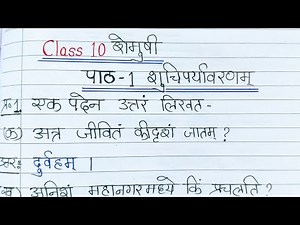 Class 10 शेमुषी
पाठ-1 शुचिपर्यावरणम्
प्र०1 एक पदेन उत्तरं लिखत-
(क) अत्र जीवितं कीदृशं जातम्?
उत्तरः दुर्वहम्।
(ख) अनिशं महानगरमध्ये किं प्रचलति?